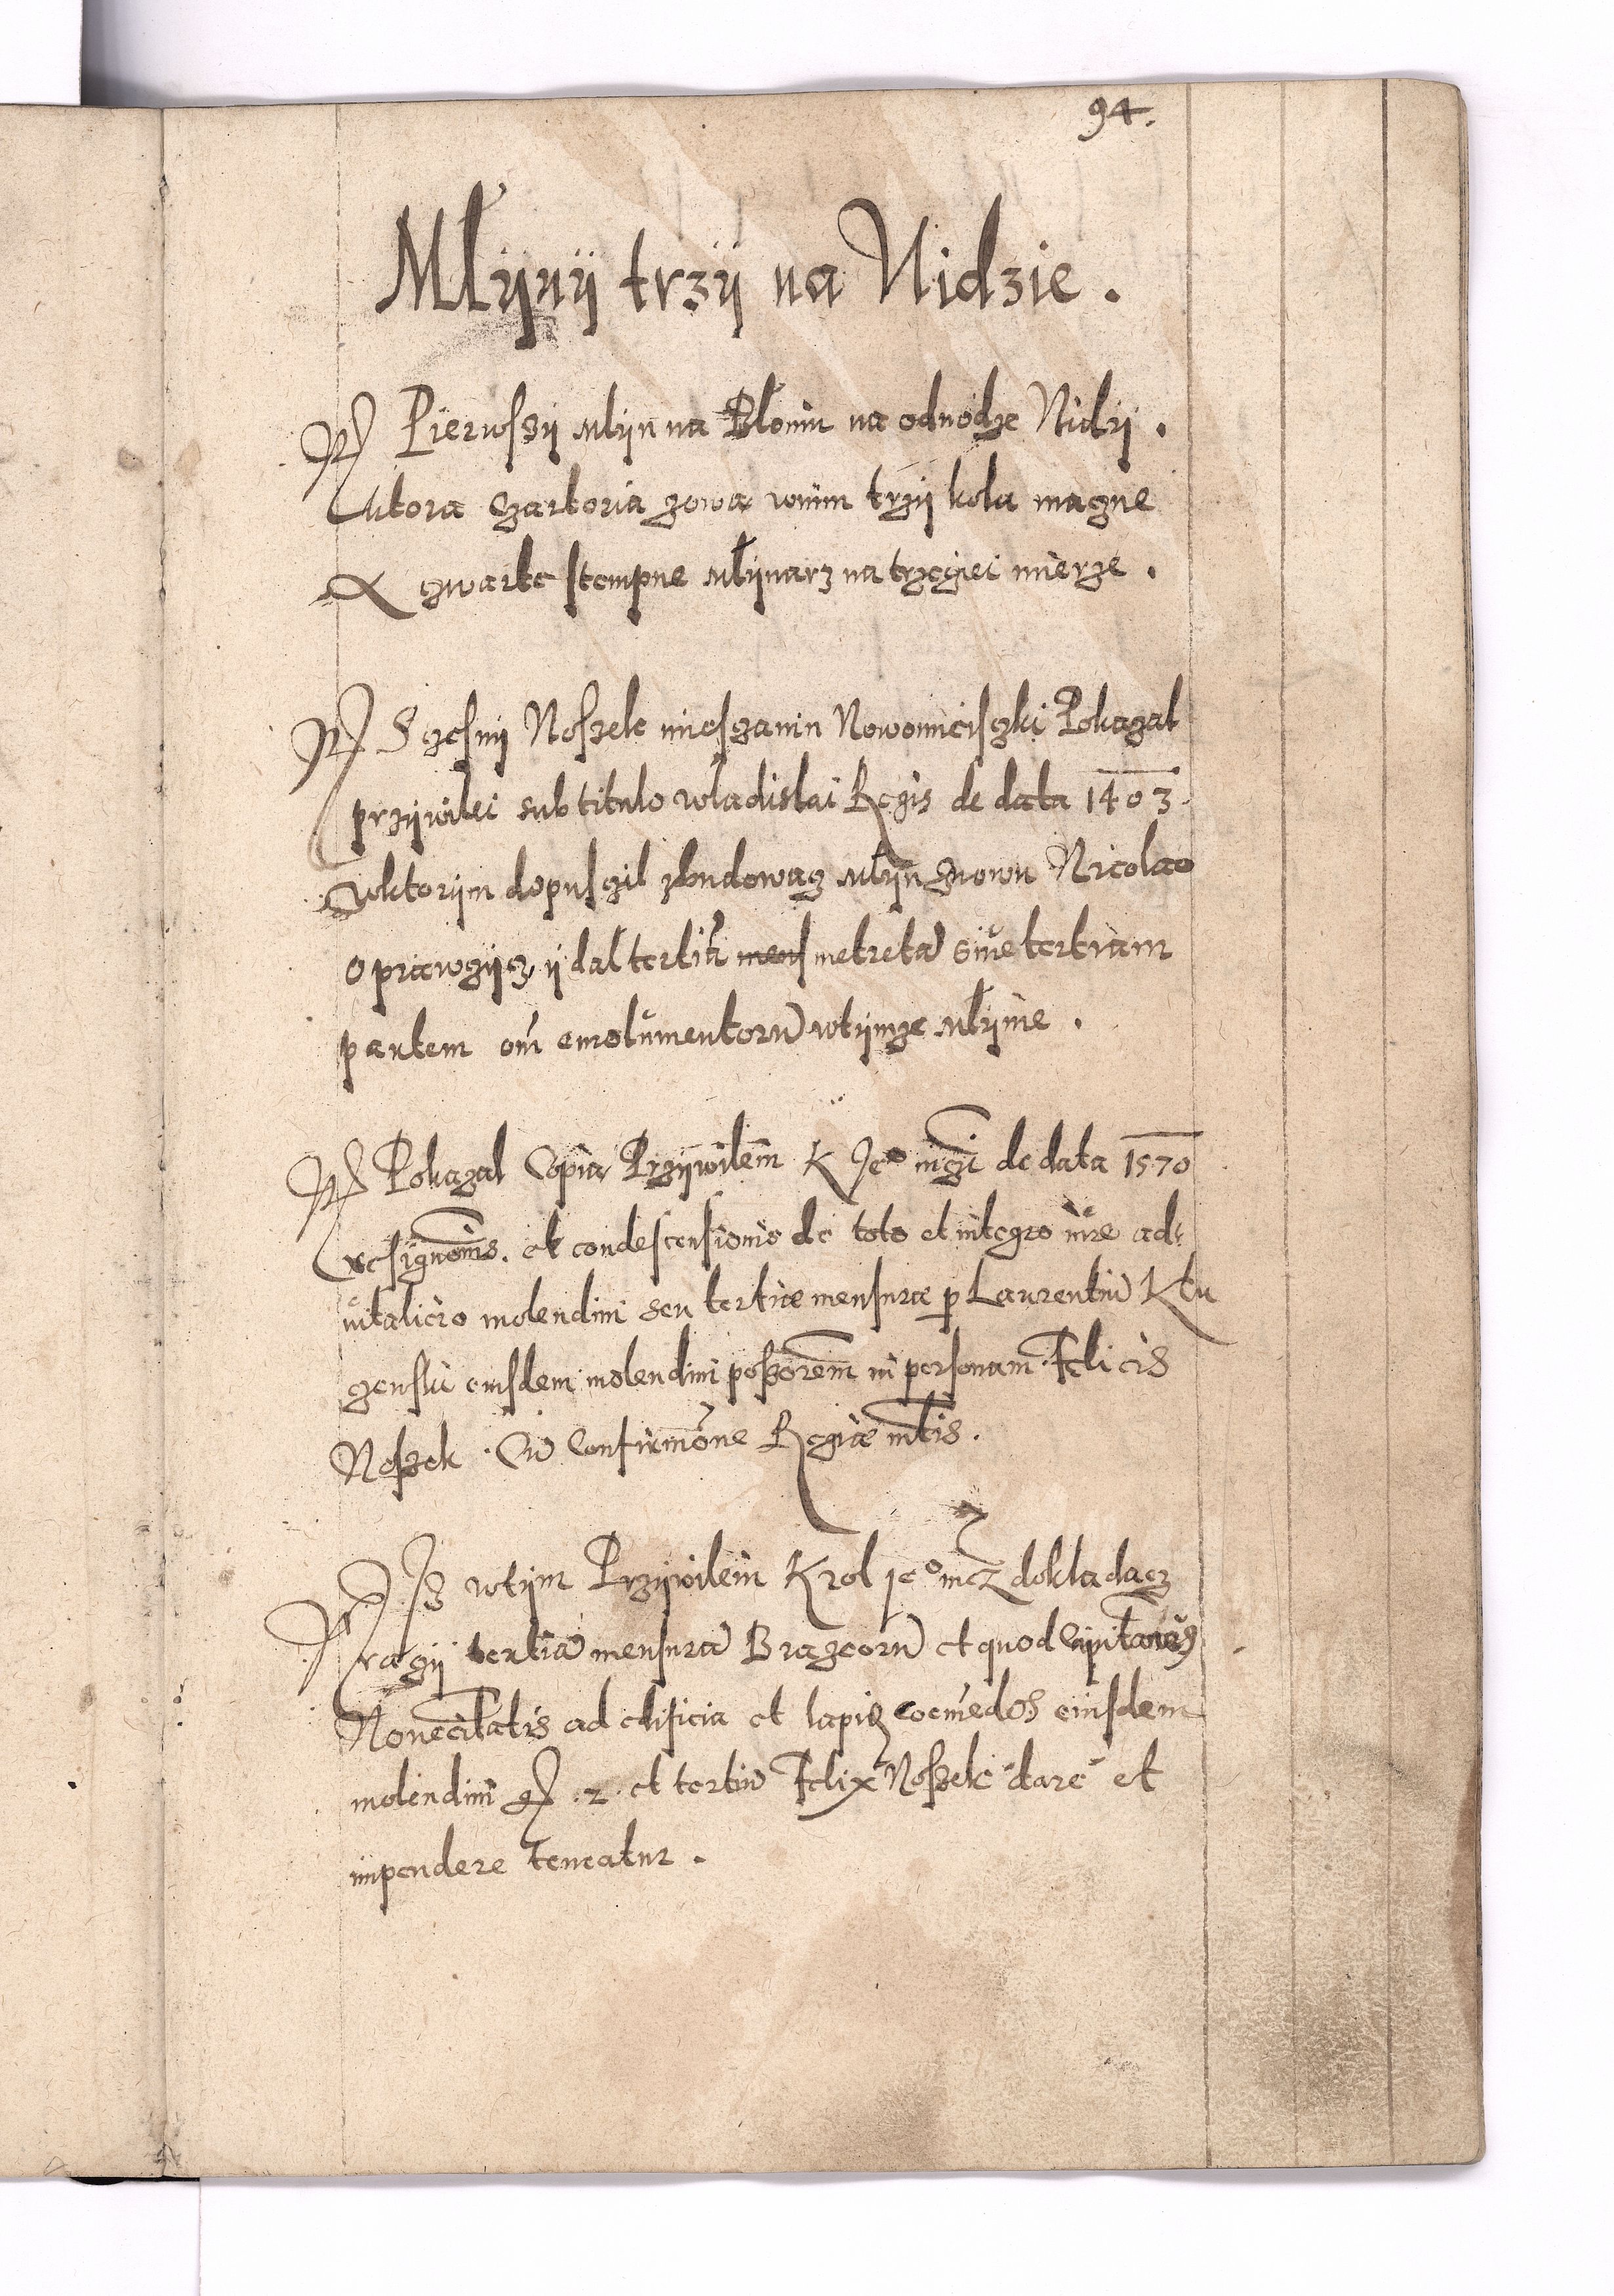 94.
Młÿnÿ trzÿ na Nidzie.
Pierwszÿ młÿn na Błoniu na odnodze Nidÿ.
ktora czartoria zową wnim trzÿ kola mączne
A czwarte stempne młÿnarz na trzeciei mierze.
Sczesnÿ Noszek miesczanin Nowomieisczki Pokazał
przÿwilei sub titulo władislai Regis de data 1403
wktorÿm dopusczil zbudowacz młÿn znowu Nicolao
oprawczÿcz, ÿ dał tertiā mens metretā siue tertiam
partem om̄ emolumentorū wtÿmze młÿnie.
Pokazał Copią Przÿwileiu K Jeo mczi de data 1570
resignōnis. et condescensionis de toto et integro iure ad
uitalicio molendini seu tertiæ mensuræ p Laurentiū Klu
eiusdem molendini poszorem in personam Felicis
Noszek. Cū Confirmōne Regiæ mtis.
Isz wtÿm Przÿwileiu Krol jeo mcz dokladacz
raczÿ tertiā mensurā Brazeorū et quod Capitaneus
Nouecitatis ad edificia et lapid coemēdos eiusdem
molendini gr. 2. et tertiū Felix Noszek dare et
impendere teneatur.